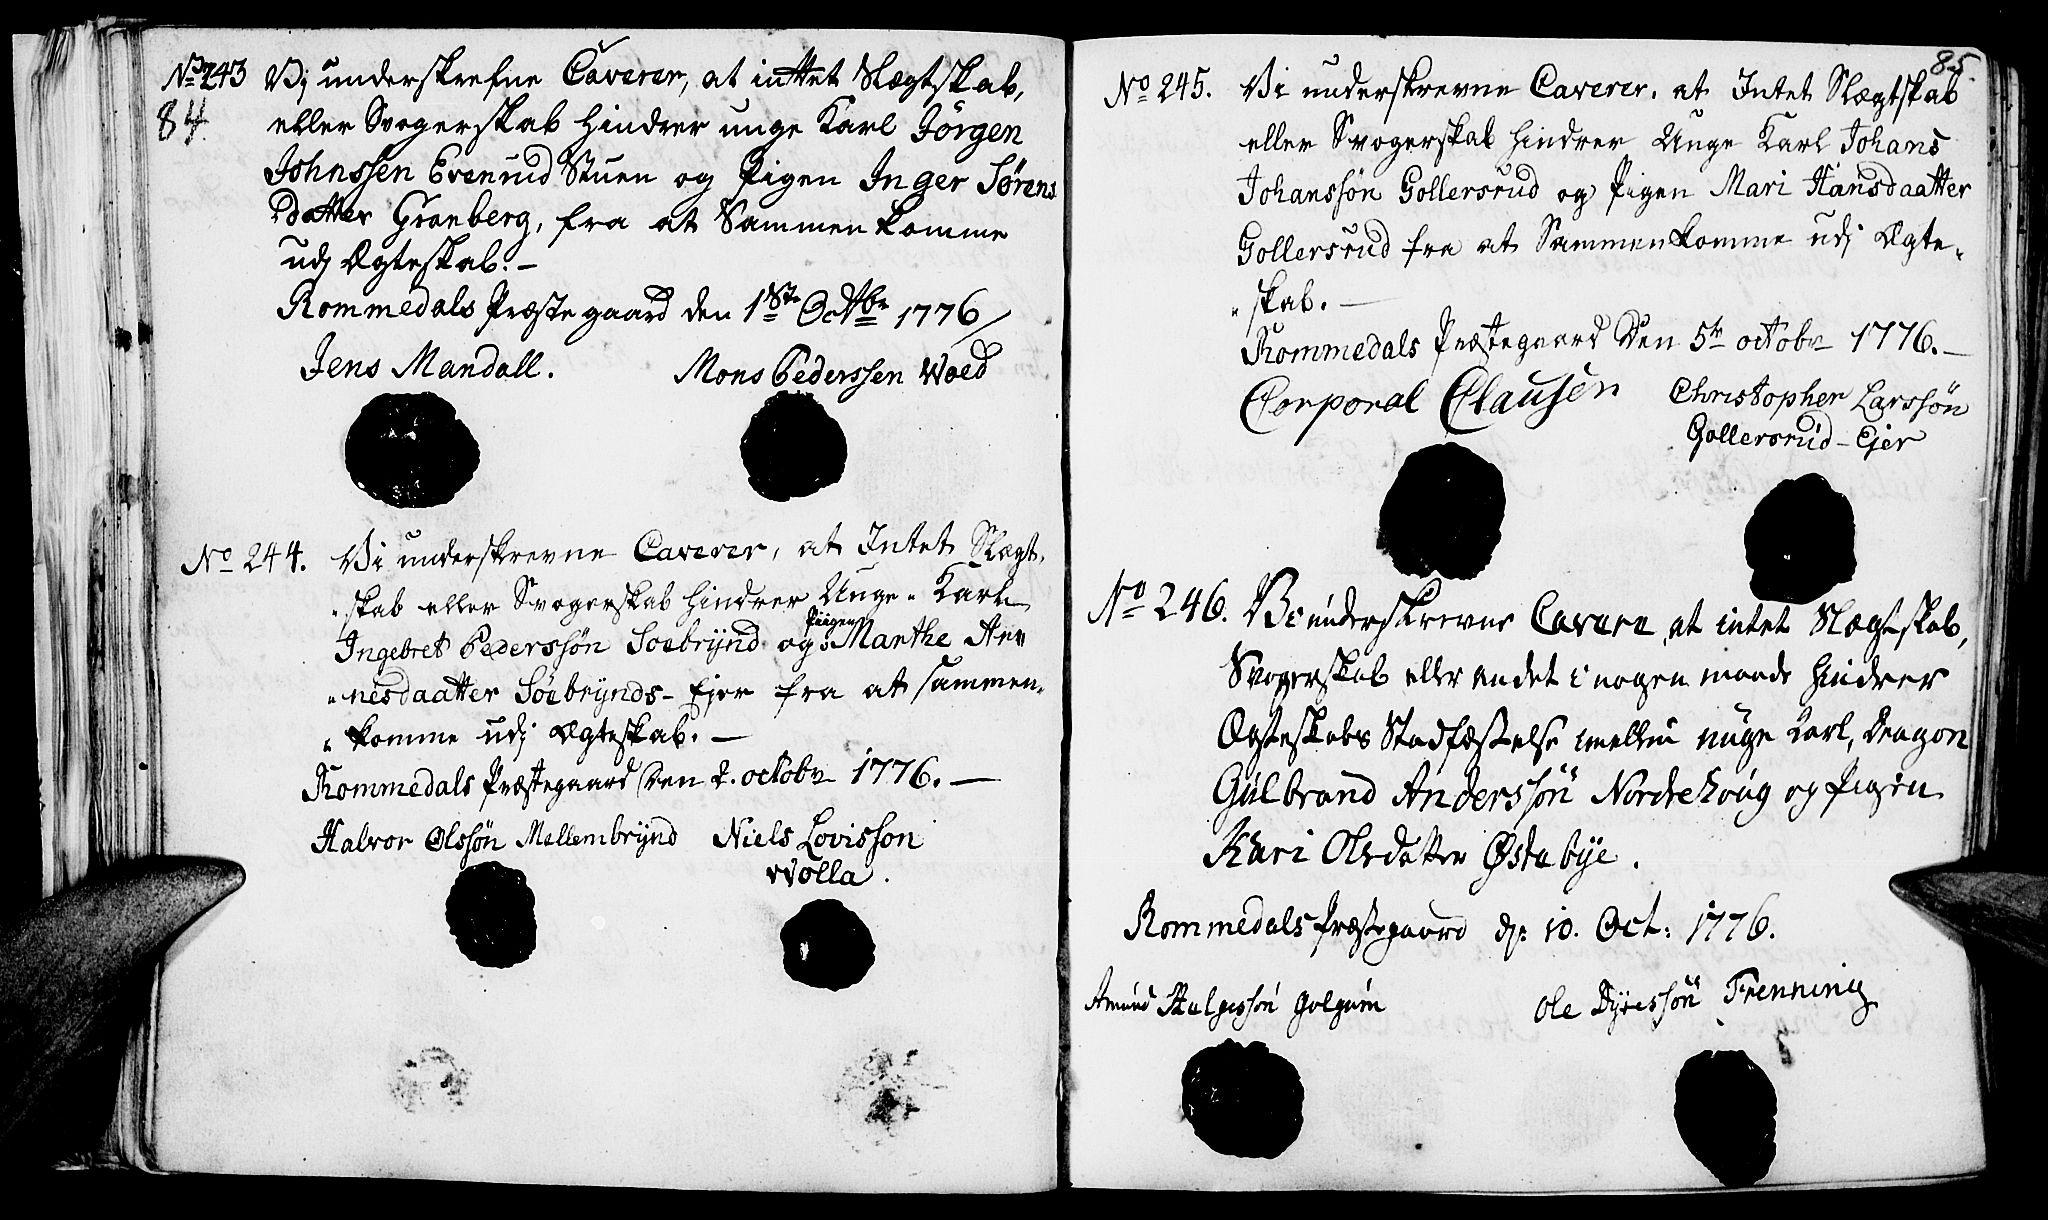 No 243 Vi underskrefne Caverer, at inttet Slægtskab,
84.
eller Svogerskab hindrer unge Karl Jörgen
Johnssen Evenrud Stuen og Pigen Inger Sörens
datter Granberg, fra at Sammenkomme
udj Ægteskab. —
Rommedals Præstegaard den 1ste Octbr 1776/
Jens Mandall. Mons Pederssen Woed
No 244. Vi underskrevne Caverer, at Intet Slægt-
skab eller Svogerskab hindrer Unge Karl
Pigen
Ingebret Pederssön Soebrÿnd og Marthe Ar-
nesdaatter Söebrÿnds-Ejer fra at sammen-
komme udj Ægteskab. —
Rommedals Præstegaard Den 2. octobr 1776. —
Halvor Olssön Mellembrÿnd Niels Lovisson
Wolla.
85.
No 245. Vi underskrevne Caverer, at Intet Slægtskab
eller Svogerskab hindrer Unge Karl Johans
Johanssön Gollersrud og Pigen Mari Hansdaatter
Gollersrud fra at Sammenkomme udj Ægte-
skab. —
Rommedals Præstegaard Den 5te octobr 1776. —
Corporal Clausen Christopher Larssön
Gollersrud-Ejer
No 246. Vi underskrevne Cavere, at intet Slægtskab,
Svogerskab eller andet i nogen maade hindrer
Ægteskabs Stadfæstelse imellem unge Karl, Dragon
Gulbrand Anderssön Nordrehoug og Pigen
Kari Olsdatter Østebÿe.
Rommedals Præstegaard d: 10. Oct: 1776.
Amund Helgessön Golgum Ole Dÿressön Frenning